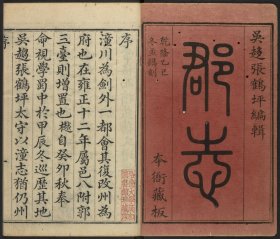 吳趨張鶴坪編輯
乾隆乙巳
冬至鐫刻
郡志
本衙藏板
序
潼川為劍外一都會其復改州為
府也在雍正十二年屬邑八附郭
三臺則增置也越自癸卯秋奉
命視學蜀中於甲辰冬巡歷其地
吳趨張鶴坪太守以潼志猶仍州